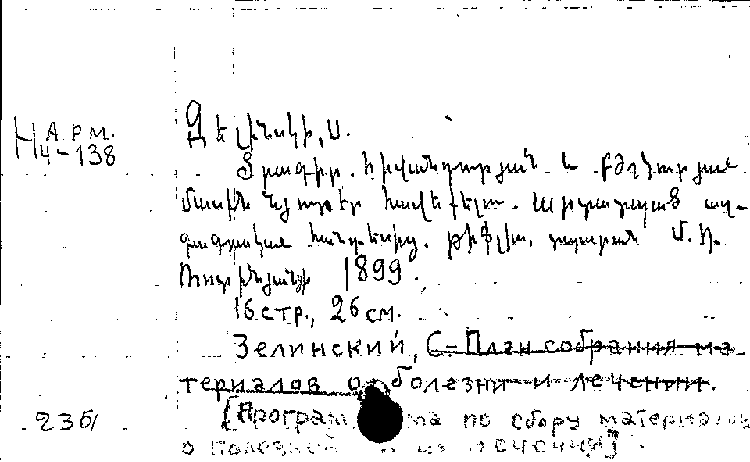 Арм.
Н4-138
Զելինսկի, Ս.
Ծրագիր. հիվանդության և բժշկության
մասին նյութեր հավաքելու. Արտատպած ազ-
գագրական հանդեսից. Թիֆլիս, տպարան Մ. Դ.
1899.
16 стр., 26 см.
Зелинский, С. План собрания ма-
териалов о болезни и лечении.
236/ [Программа по сбору материалов
о болезни и лечении].